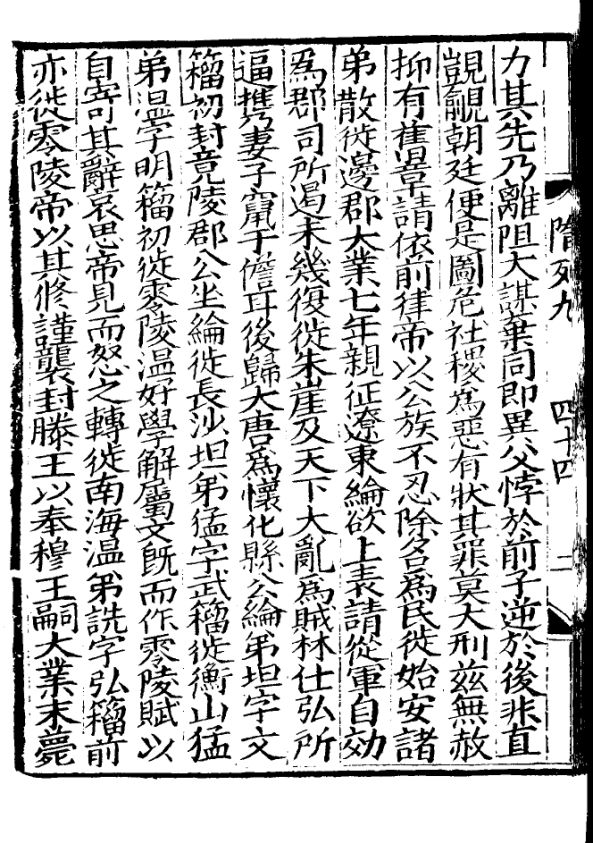 隋列九 四十四 二
力其先乃離阻大謀棄同即異父悖於前子逆於後非直
覬覦朝廷便是圖危社稷為惡有狀其罪莫大刑兹無赦
抑有舊章請依前律帝以公族不忍除名為民徙始安諸
弟散徙邊郡大業七年親征遼東綸欲上表請從軍自効
為郡司所遏未幾復徙朱崖及天下大亂為賊林仕弘所
逼攜妻子竄于儋耳後歸大唐為懷化縣公綸弟坦字文
籀初封竟陵郡公坐綸徙長沙坦弟猛字武籀徙衡山猛
弟温字明籀初徙零陵温好學解屬文既而作零陵賦以
自寄其辭哀思帝見而怒之轉徙南海温弟詵字弘籀前
亦徙零陵帝以其修謹襲封滕王以奉穆王嗣大業末薨